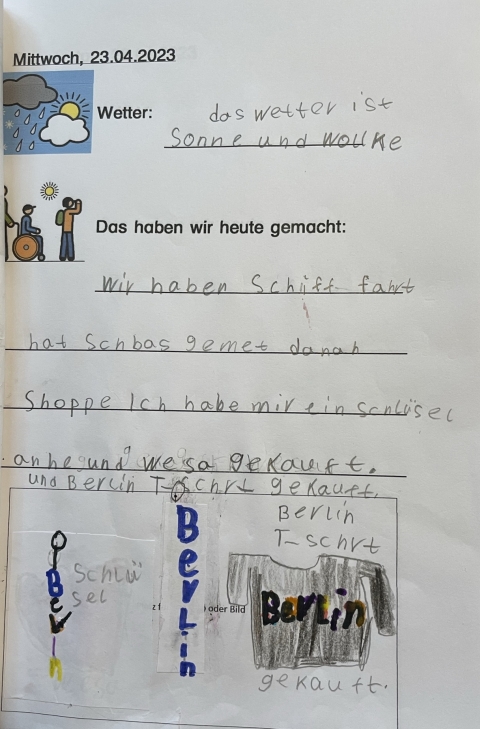 Mittwoch, 23.04.2023
Wetter: das wetter ist
Sonne und wolke
Das haben wir heute gemacht:
Wir haben Schiff fahrt
hat Schbas gemet danah
Shoppe Ich habe mir ein schlüsel
anhe und we sa gekauft.
und Berlin T-schrt gekauft.
Berlin
T-schrt
Berlin
Schlü
sel
Berlin
oder Bild
Berlin
gekauft.